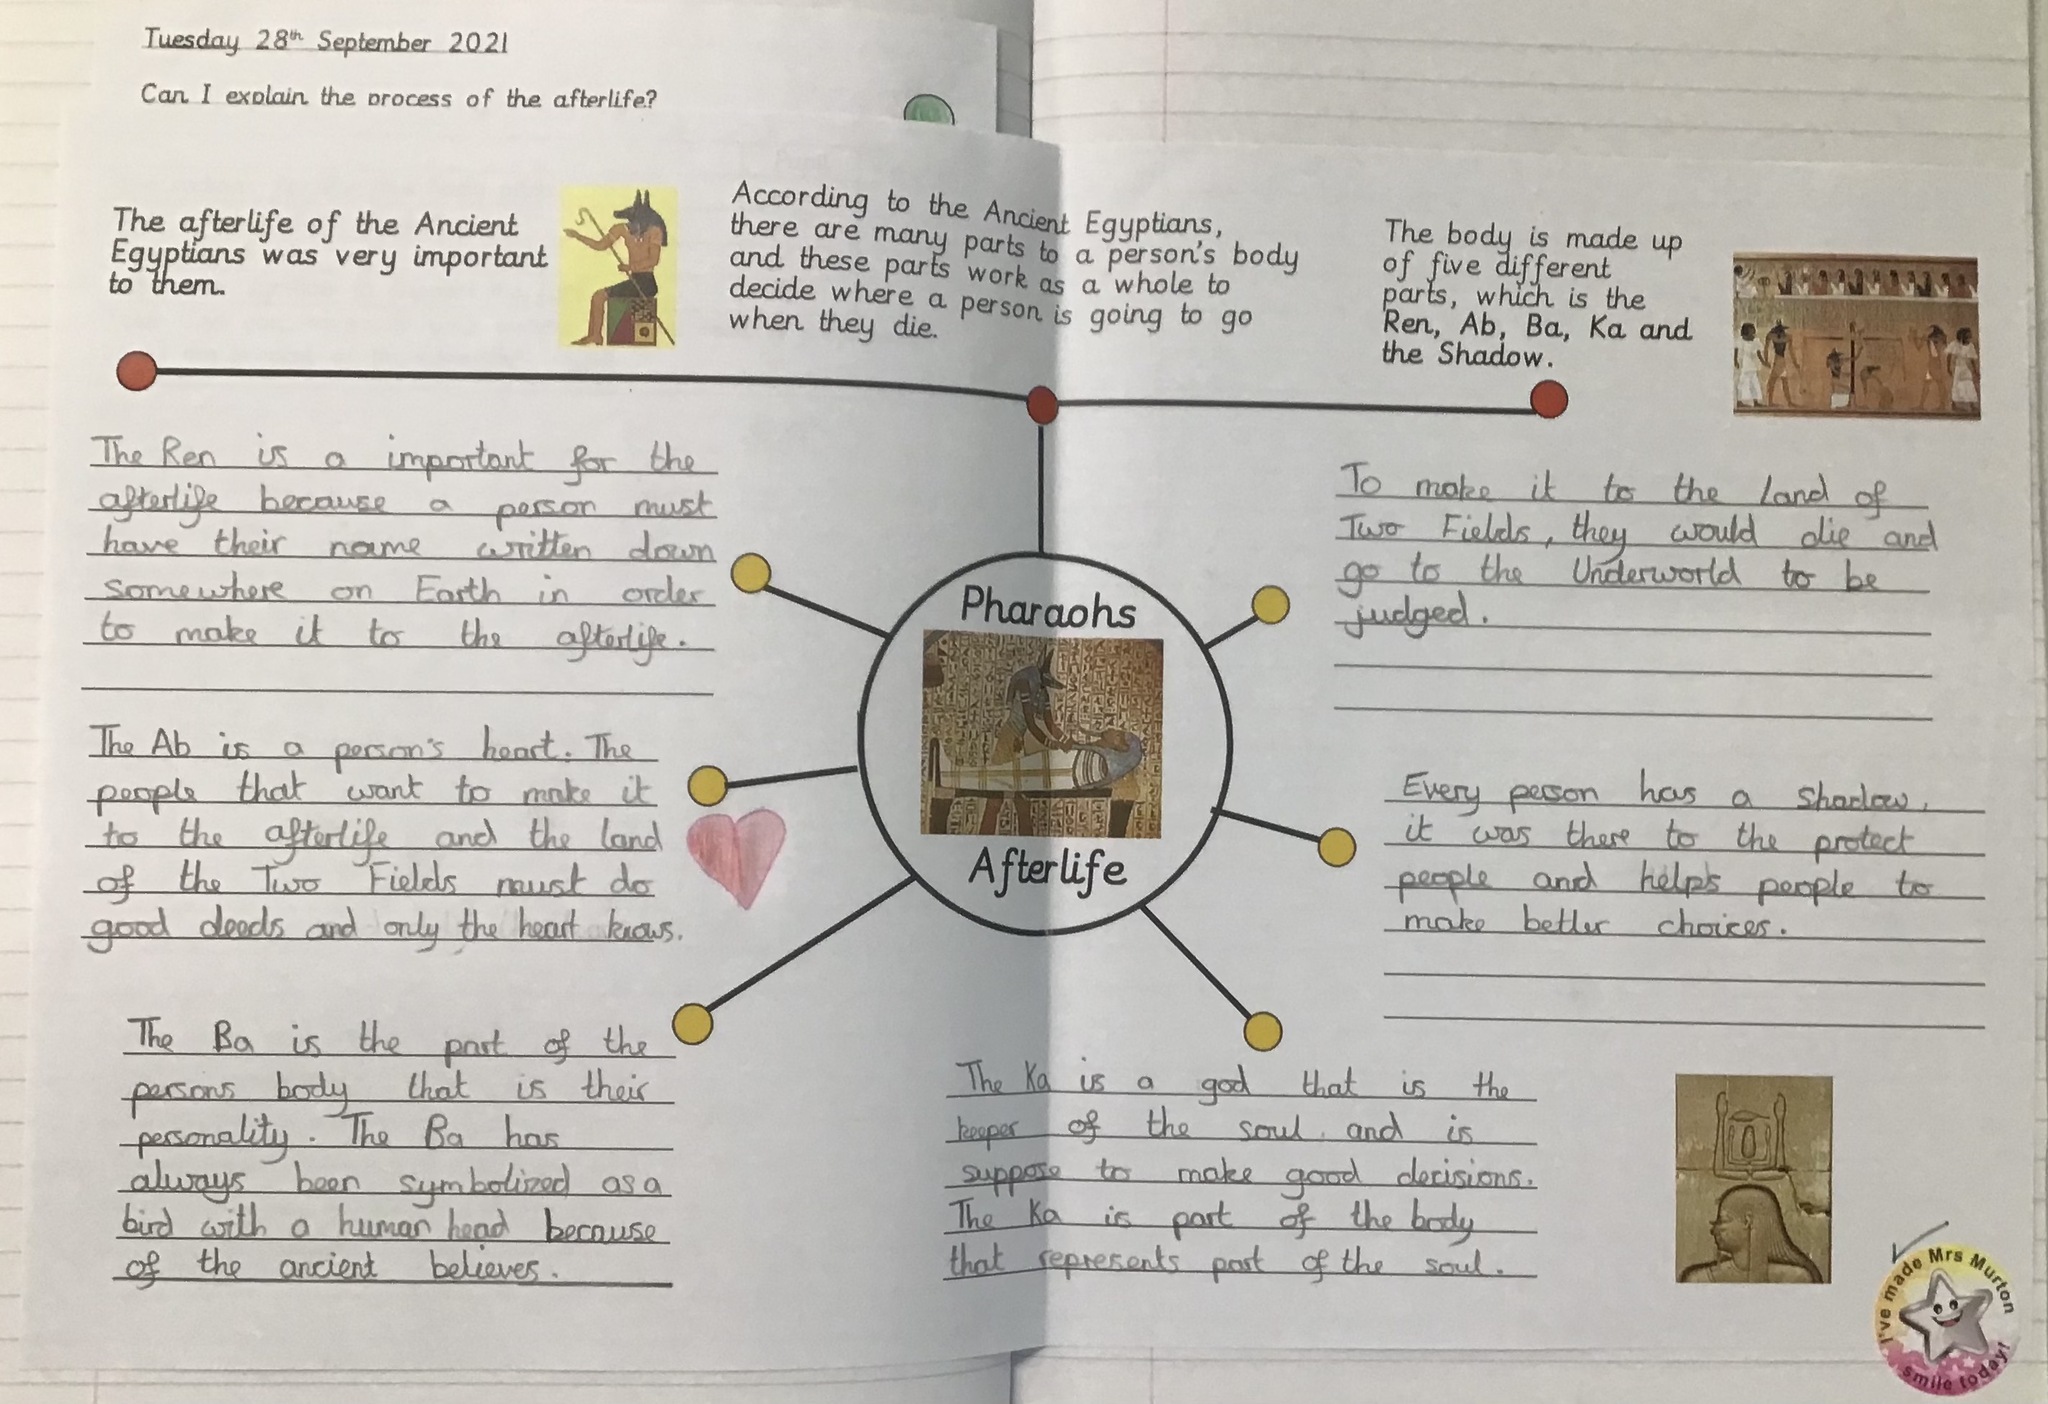 Tuesday 28th September 2021
Can I explain the process of the afterlife?
The afterlife of the Ancient
Egyptians was very important
to them.
According to the Ancient Egyptians,
there are many parts to a person's body
and these parts work as a whole to
decide where a person is going to go
when they die.
The body is made up
of five different
parts, which is the
Ren, Ab, Ba, Ka and
the Shadow.
The Ren is a important for the
afterlife because a person must
have their name written down
somewhere on Earth in order
to make it to the afterlife.
The Ab is a person's heart. The
people that want to make it
to the afterlife and the land
of the Two Fields must do
good deeds and only the heart knows.
The Ba is the part of the
persons body that is their
personality. The Ba has
always been symbolized as a
bird with a human head because
of the ancient believes.
Pharaohs
Afterlife
To make it to the land of
Two Fields, they would die and
go to the Underworld to be
judged.
Every person has a shadow,
it was there to the protect
people and helps people to
make better choices.
The Ka is a god that is the
keeper of the soul and is
suppose to make good decisions.
The Ka is part of the body
that represents part of the soul.
I've made Mrs Murton
smile today!